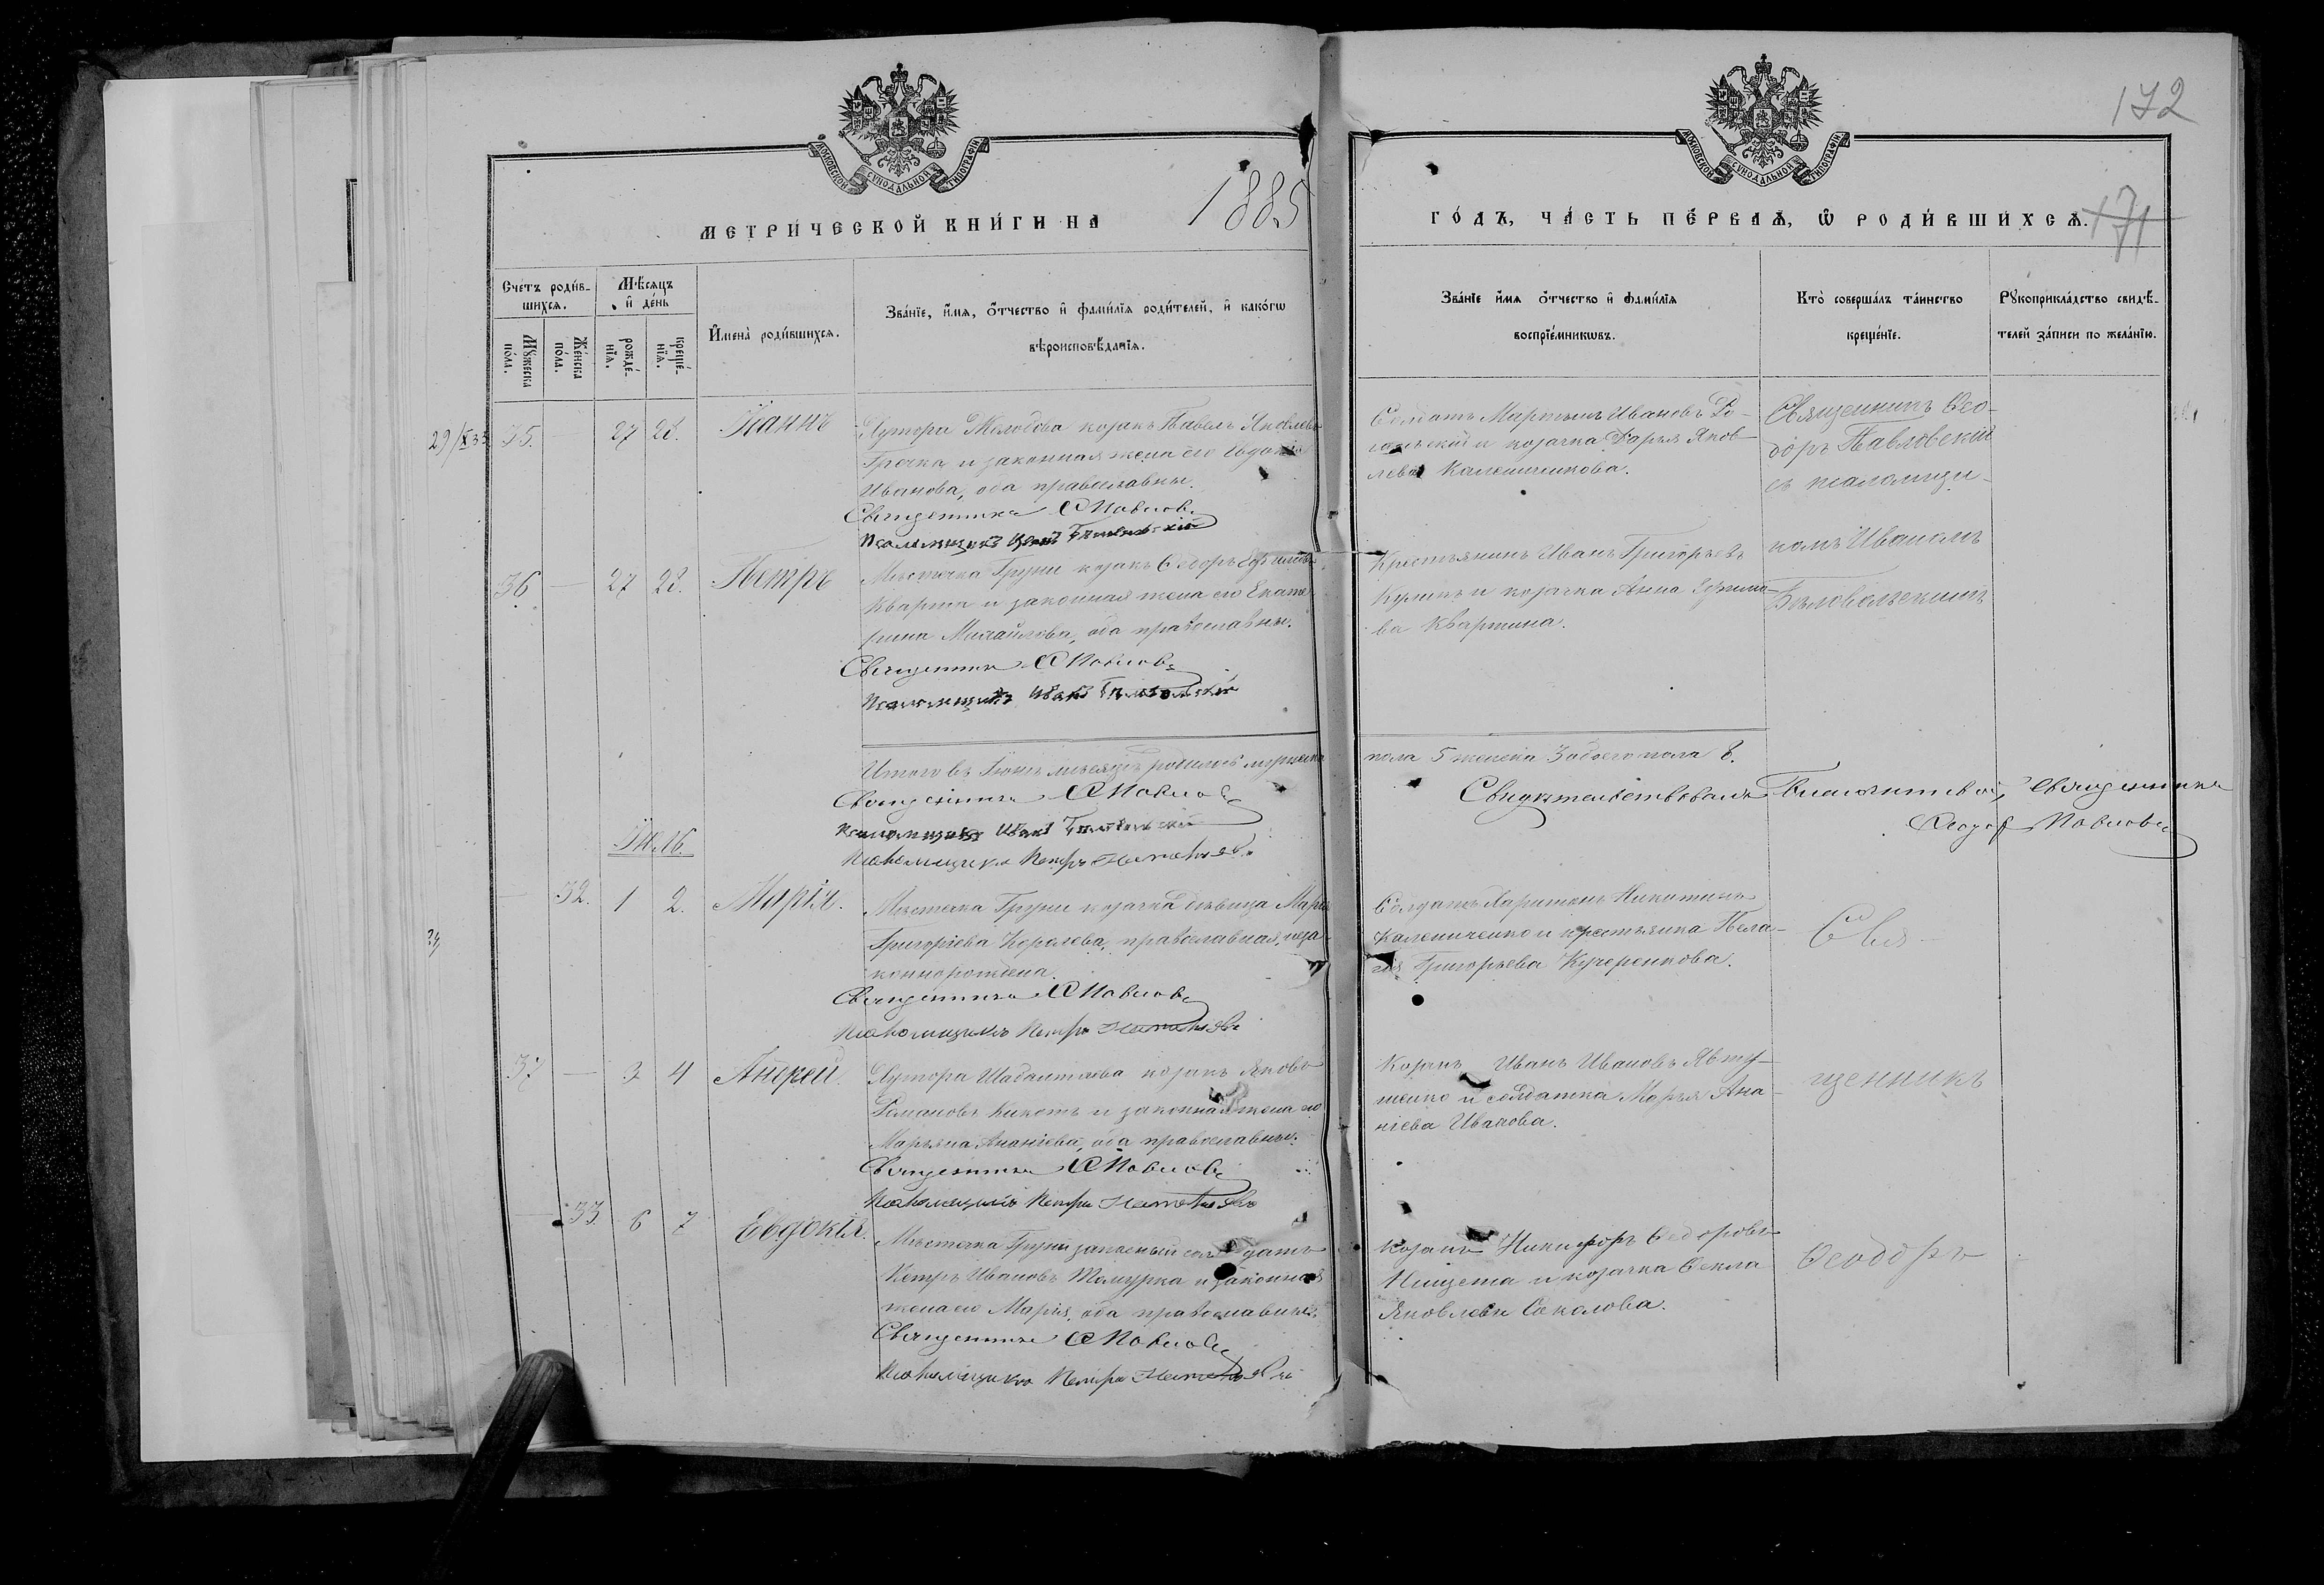 172
МОСКОВСКОЙ СѴНОДАЛЬНОЙ ТИПОГРАФІИ
МОСКОВСКОЙ СѴНОДАЛЬНОЙ ТИПОГРАФІИ
МЕТРИЧЕСКОЙ КНИГИ НА 1885
ГОДЪ, ЧАСТЬ ПЕРВАѦ, Ѡ РОДИВШИХСѦ.
171
Счетъ родив-
шихся.
Мꙋжеска
пола.
Женска
пола.
Мѣсяцъ
и день
рожде-
нія.
креще-
нія.
Имена родившихся.
Званіе, имя, отчество и фамилія родителей, и какогѡ
вѣроисповѣданія.
Званіе имя отчество и фамилія
воспріемниковъ.
Кто совершалъ таинство
крещеніе.
Рꙋкоприкладство свидѣ-
телей записи по желанію.
35. — 27 28. Іоаннъ
Хутора Молодова козакъ Павелъ Яковлевъ
Гречка и законная жена его Евдокія
Иванова, оба православны.
Священникъ Ѳ Павловс
Псаломщикъ Иванъ
Солдатъ Мартинъ Ивановъ Ро-
и козачка Дарья Яков-
лева Калениченкова.
Священникъ Ѳео-
доръ Павловскій
съ псаломщи-
комъ Иваномъ
36 — 27 28. Петръ
Мѣстечка Груни козакъ Ѳедоръ Ефимовъ
Кварта и законная жена его Екате
рина Михайлова, оба православны.
Священникъ Ѳ Павловс
Псаломщикъ Иванъ
Крестьянинъ Иванъ Григорьевъ
Кулинъ и козачка Анна Ефимо-
ва Квартина.
Итого въ Іюнѣ мѣсяцѣ родилось мужеска
пола 5 женска 3 обоего пола 8.
Священникъ Ѳ Павловс
Псаломщикъ Иванъ
Псаломщикъ Петръ
Свидѣтельствовалъ Благочинный, Священникъ
Ѳеодор Павловс
Іюль.
— 32. 1 2. Марія.
Мѣстечка Груни козачка дѣвица Марія
Григоріева Королева, православная, неза-
коннорождена.
Священникъ Ѳ Павловс
Псаломщикъ Петръ
Солдатъ Харитонъ Никитинъ
Калениченко и крестьянка Пела-
гія Григорьева Кучеренкова.
Свя-
37 — 3 4 Андрей.
Хутора Шабалтаева козакъ Яковъ
Романовъ Кикоть и законная жена его
Марьяна Ананіева, оба православны.
Священникъ Ѳ Павловс
Псаломщикъ Петръ
Козакъ Иванъ Ивановъ Явту-
шенко и солдатка Марья Ана-
ніева Иванова.
щенникъ
— 33 6 7 Евдокія.
Мѣстечка Груни запасный солдатъ
Петръ Ивановъ Томурка и законная
жена его Марія, оба православны.
Священникъ Ѳ Павловс
Псаломщикъ Петръ
Козакъ Никифоръ Ѳедоровъ
Нищета и козачка Ѳекла
Яковлева Соколова.
Ѳеодоръ